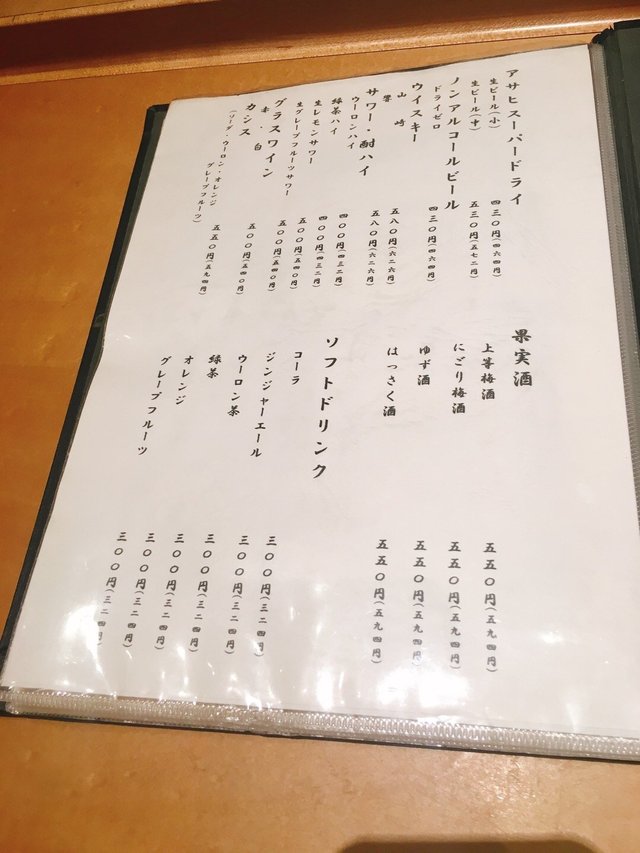 アサヒスーパードライ
生ビール(小) 四三〇円(四六四円)
生ビール(中) 五三〇円(五七二円)
ノンアルコールビール
ドライゼロ 四三〇円(四六四円)
ウイスキー
山崎 五八〇円(六二六円)
響 五八〇円(六二六円)
サワー・酎ハイ
ウーロンハイ 四〇〇円(四三二円)
緑茶ハイ 四〇〇円(四三二円)
生レモンサワー 五〇〇円(五四〇円)
生グレープフルーツサワー 五〇〇円(五四〇円)
グラスワイン
赤・白 五〇〇円(五四〇円)
カシス
(ソーダ・ウーロン・オレンジ
グレープフルーツ) 五五〇円(五九四円)
果実酒
上等梅酒 五五〇円(五九四円)
にごり梅酒 五五〇円(五九四円)
ゆず酒 五五〇円(五九四円)
はっさく酒 五五〇円(五九四円)
ソフトドリンク
コーラ 三〇〇円(三二四円)
ジンジャーエール 三〇〇円(三二四円)
ウーロン茶 三〇〇円(三二四円)
緑茶 三〇〇円(三二四円)
オレンジ 三〇〇円(三二四円)
グレープフルーツ 三〇〇円(三二四円)